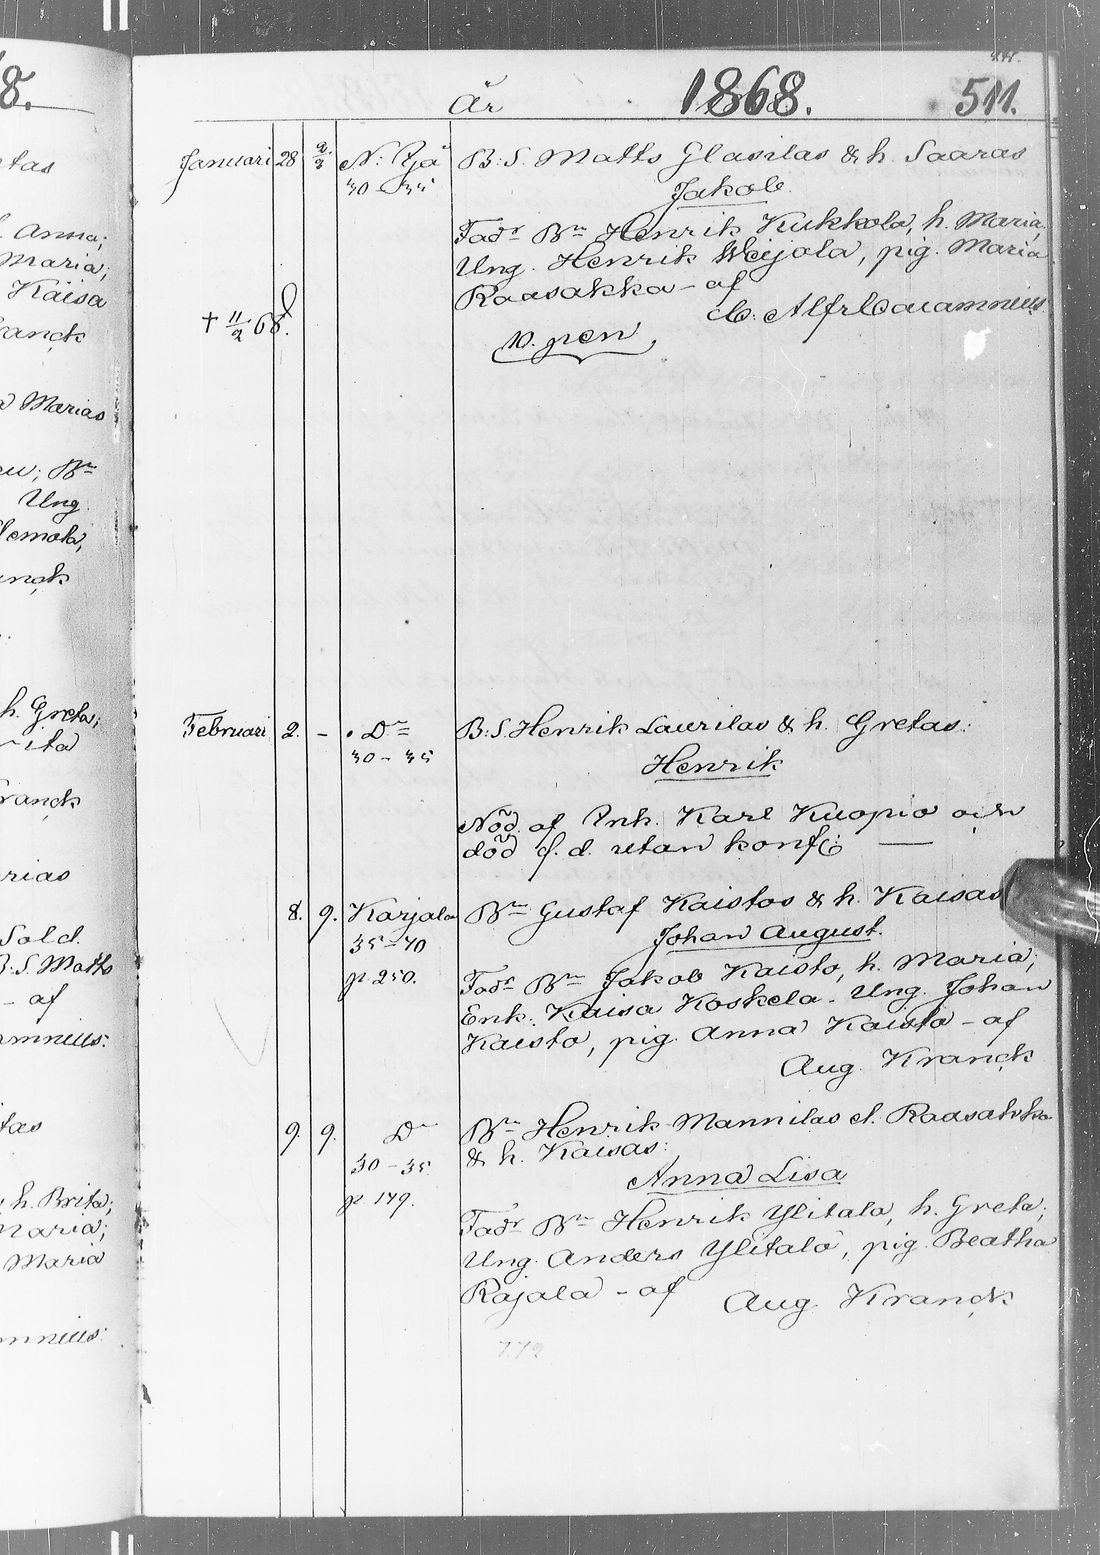 8.
År 1868. 511.
tas
Anna;
Maria;
Kaisa
ranck
Marias
Bn
Ung.
lemola,
anck
h. Greta;
ita
ranck
rias
Sold.
B. S. Matts
- af
amnius.
tas
h. Brita;
Maria;
Maria
mnius.
Januari 28 2/3 N: Yjå B: S. Matts Glasilas & h. Saaras
30 - 35 Jakob.
Fadr Bn Henrik Kukkola, h. Maria,
Ung. Henrik Weijola, pig. Maria
Raasakka - af
C. Alfr Cajamnius.
† 11/2 68.
10. pen.
Februari 2. - Do B: S. Henrik Laurilas & h. Gretas:
30 - 35 Henrik
Nöd. af Inh. Karl Kuopio och
död f. d. utan konf:
8. 9. Karjala Bn Gustaf Kaistos & h. Kaisas
35 - 40 Johan August.
p 250. Fadr Bn Jakob Kaisto, h. Maria;
Enk. Kaisa Koskela - Ung. Johan
Kaisto, pig. Anna Kaisto - af
Aug. Kranck
9. 9. Do Bn Henrik Mannilas el. Raasakka
& h. Kaisas:
30 - 35 Anna Lisa
p 179. Fadr Bn Henrik Ylitalo, h. Greta;
Ung. Anders Ylitalo, pig. Beatha
Rajala - af Aug. Kranck
779